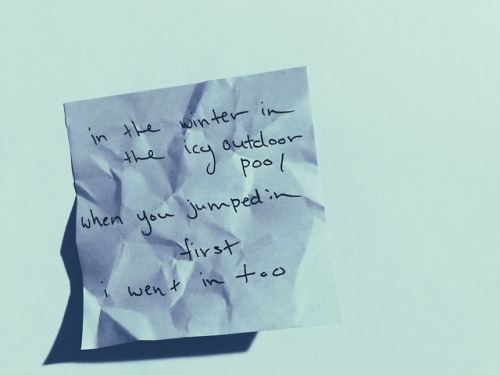 in the winter in
the icy outdoor
pool
when you jumped in
first
i went in too